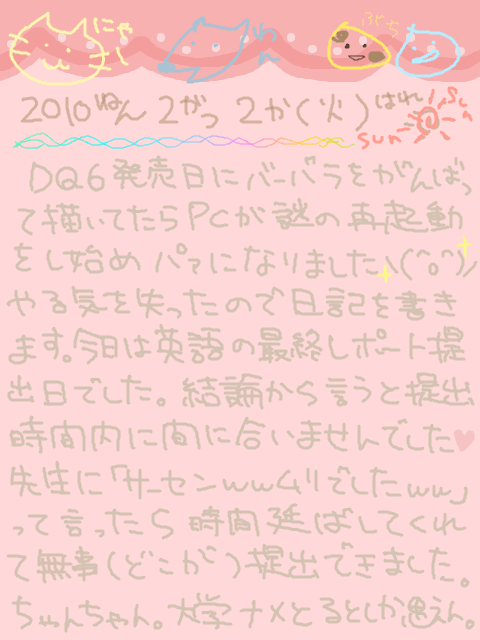 にゃー わん ぶち
2010ねん 2がつ 2か(火) はれ
sun sun
DQ6発売日にバーバラをがんばっ
て描いてたらPCが謎の再起動
をし始めパァになりました\(^o^)/
やる気を失ったので日記を書き
ます。今日は英語の最終レポート提
出日でした。結論から言うと提出
時間内に間に合いませんでした♥
先生に「サーセンwwムリでしたww」
って言ったら時間延ばしてくれ
て無事(どこが)提出できました。
ちゅんちゃん。大学ナメとるとしか思えん。